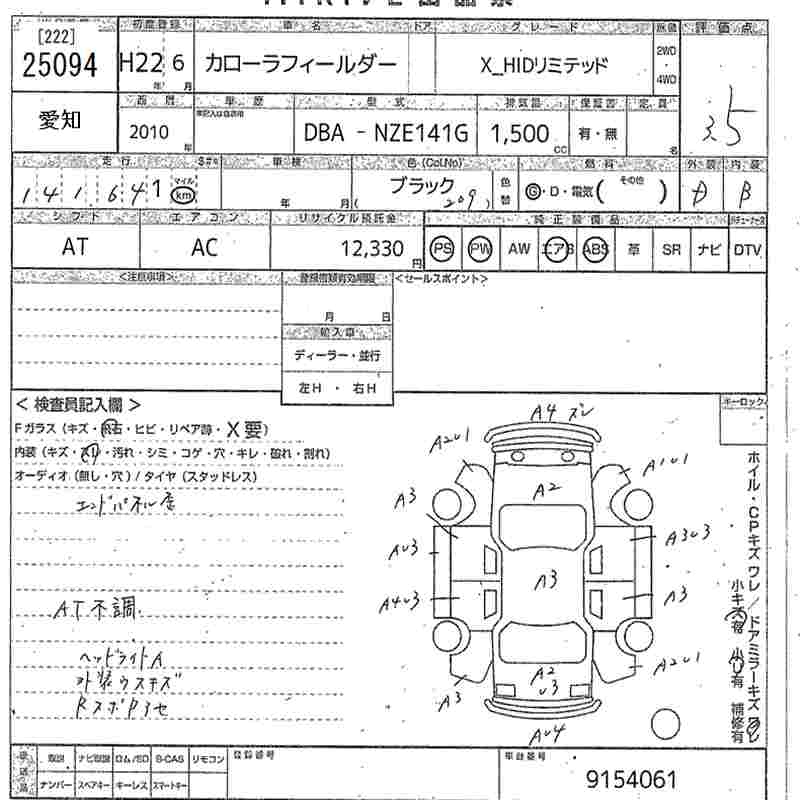 [222]
25094
初度登録 車名 ドア グレード 評価点
H22 6
年 月
カローラフィールダー
X_HIDリミテッド
2WD
・
4WD
愛知
西暦 車歴 型式 排気量 保証書 定員
2010 年
DBA - NZE141G
1,500 cc
有・無
名
3.5
走行 車検 色(Col.No) 燃料 外装 内装
1 4 1 6 4 1
マイル
km
年 月
ブラック
( 209 )
色替
G・D・電気( その他 )
D
B
シフト エアコン リサイクル預託金 純正装備品
AT
AC
12,330 円
PS PW AW エアB ABS 革 SR ナビ DTV
<注意事項>
<セールスポイント>
月 日
輸入車
ディーラー・並行
左H ・ 右H
< 検査員記入欄 >
キーロック
Fガラス (キズ・飛石・ヒビ・リペア跡・X要)
内装 (キズ・スレ・汚れ・シミ・コゲ・穴・キレ・破れ・割れ)
オーディオ (無し・穴) / タイヤ (スタッドレス)
エンドパネル歪
AT不調
ヘッドライトA
外装ウスキズ
A4 ズレ
A2U1
A1U1
A2
A3
A3U3
AU3
A3
A4U3
A3
A2U1
A2
U3
A3
AU4
ホイル・CPキズ ワレ / ドアミラーキズ ワレ
補修有
取説 ナビ取説 ロム/SD B-CAS リモコン
ナンバー スペアキー キーレス スマートキー
登録番号
車台番号
9154061